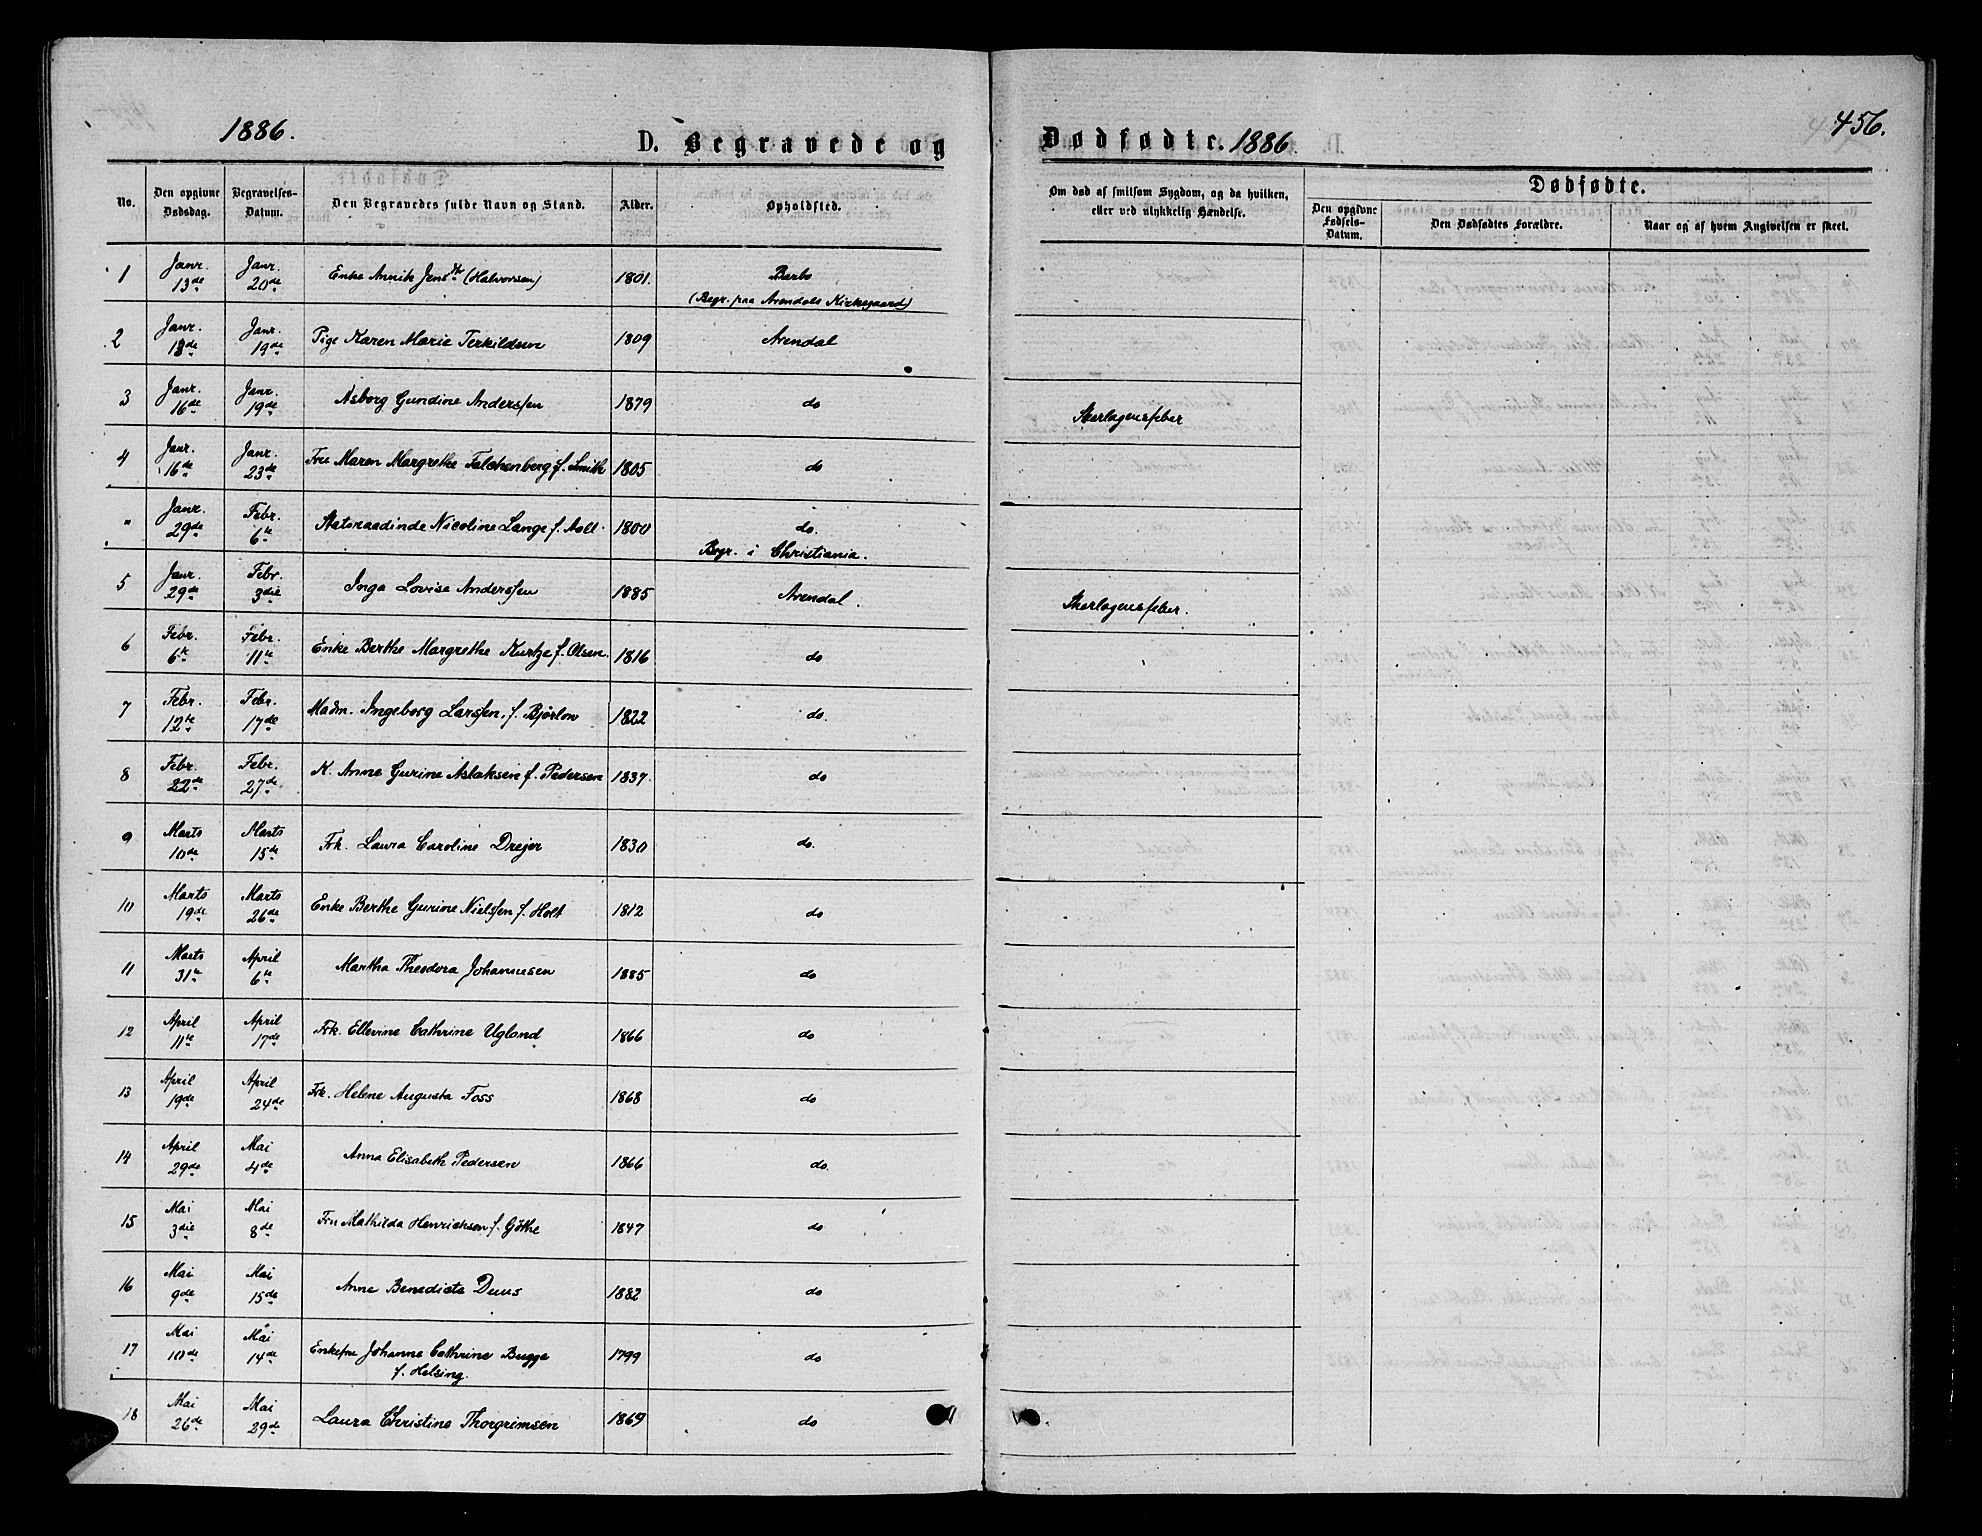 1886.
D. Begravede og
Dødfødte. 1886
456.
No.
Den opgivne Dødsdag.
Begravelses-Datum.
Den Begravedes fulde Navn og Stand.
Alder.
Opholdsted.
Om død af smitsom Sygdom, og da hvilken, eller ved ulykkelig Hændelse.
Dødfødte.
Den opgivne Fødsels-Datum.
Den Dødfødtes Forældre.
Naar og af hvem Angivelsen er skeet.
1 Janr. 13de Janr. 20de Enke Annik Jensdtr (Halvorsen) 1801. Barbo
(Begr. paa Arendals Kirkegaard)
2 Janr. 13de Janr. 19de Pige Karen Marie Terkildsen 1809 Arendal
3 Janr. 16de Janr. 19de Asborg Gundine Anderssen 1879 do Skarlagensfeber
4 Janr. 16de Janr. 23de Fru Maren Margrethe Falchenberg f. Smith 1805 do
" Janr. 29de Febr. 6te Statsraadinde Nicoline Lange f. Aall 1800 do.
Begr. i Christiania.
5 Janr. 29de Febr. 3die Inga Lovise Anderssen 1885 Arendal. Skarlagensfeber.
6 Febr. 6te Febr. 11te Enke Berthe Margrethe Kurtze f. Olsen. 1816 do
7 Febr. 12te Febr. 17de Madm. Ingeborg Larssen, f. Bjørlow 1822 do.
8 Febr. 22de Febr. 27de K. Anne Gurine Aslaksen f. Pedersen 1837. do
9 Marts 10de Marts 15de Frk. Laura Caroline Drejer 1830 do.
10 Marts 19de Marts 26de Enke Berthe Gurine Nielssen f. Holt 1812 do
11 Marts 31te April 6te Martha Theodora Johannesen 1885 do
12 April 11te April 17de Frk. Ellevine Cathrine Ugland 1866 do
13 April 19de April 24de Frk. Helene Augusta Foss 1868 do
14 April 29de Mai 4de Anna Elisabeth Pedersen 1866 do.
15 Mai 3die Mai 8de Fru Mathilda Henrichsen f. Göthe 1847 do
16 Mai 9de Mai 15de Anne Benedicte Duus 1882 do
17 Mai 10de Mai 14de Enkefru Johanne Cathrine Bugge 1799 do
f. Helsing.
18 Mai 26de Mai 29de Laura Christine Thorgrimsen 1869 do